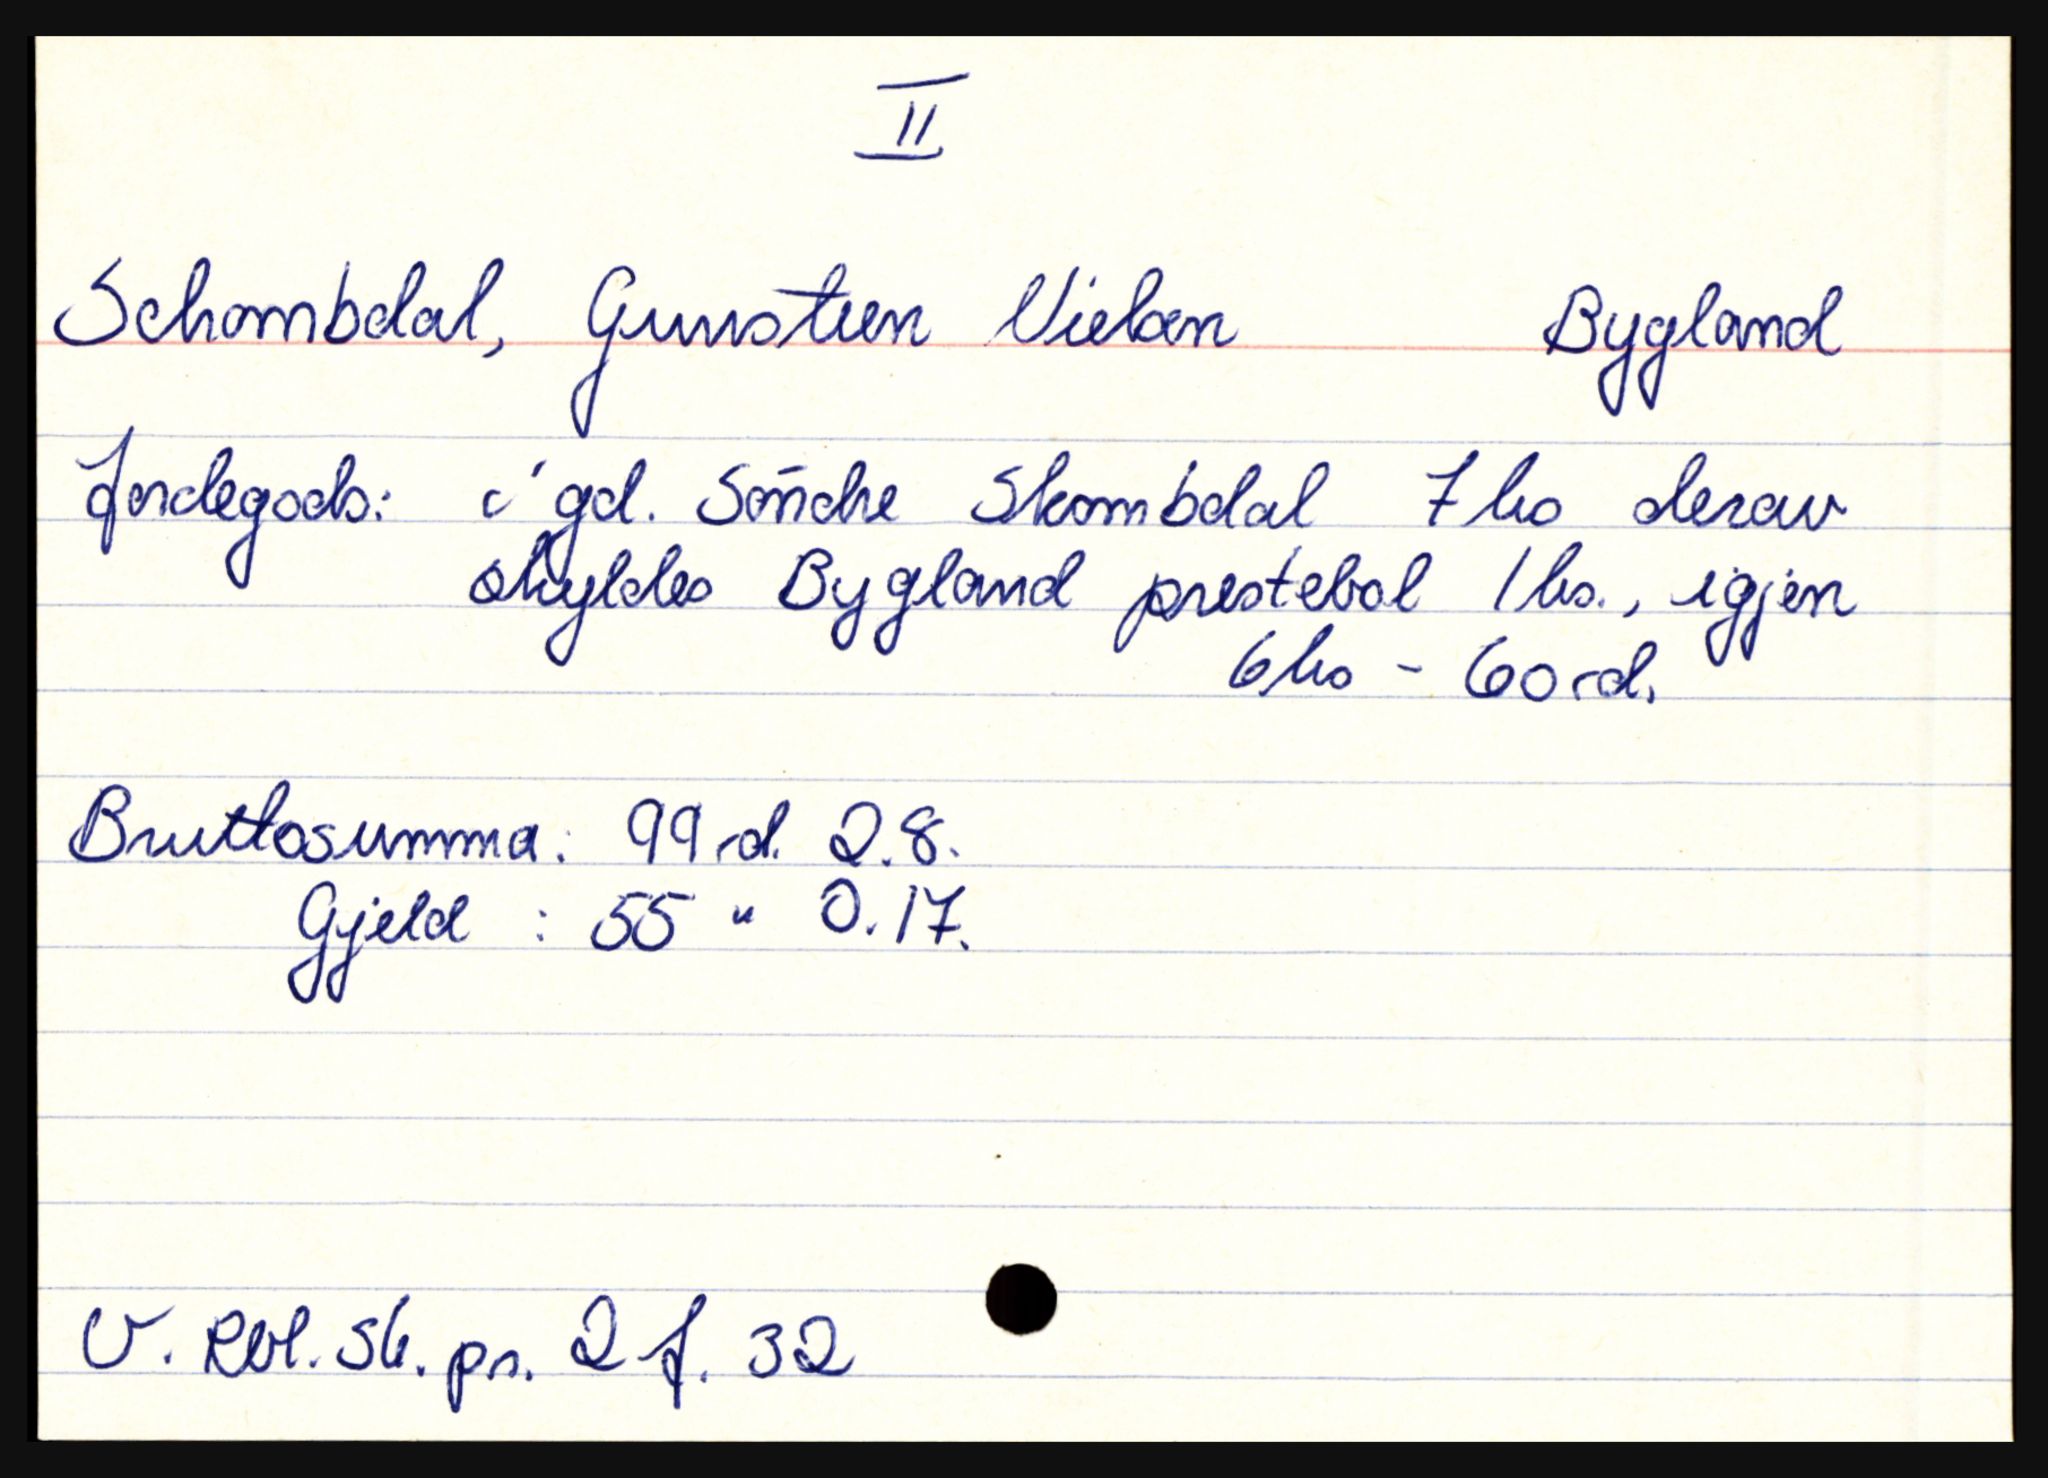 II
Schombdal, Gunsteen Vielsen Bygland
Jordegods: i gd. Söndre Skombdal 7 hs derav
skyldes Bygland prestebol 1 hs., igjen
6 hs - 60 rd.
Bruttosumma: 99 rd. 2.8.
Gjeld : 55 " 0.17.
V. Rbl. Sk. pr. 2 f. 32